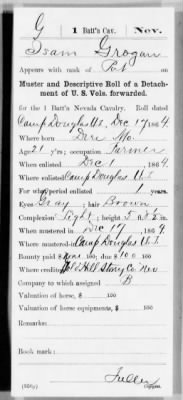 G | 1 Batt'n Cav. | Nev.
Isam Grogan
Appears with rank of Pvt on
Muster and Descriptive Roll of a Detach-
ment of U. S. Vols. forwarded.
for the 1 Batt'n Nevada Cavalry. Roll dated
Camp Douglas U.T., Dec 17, 1864.
Where born Mo.
Age 21 y'rs; occupation Farmer
When enlisted Dec 1, 1864.
Where enlisted Camp Douglas U.T.
For what period enlisted 1 years.
Eyes Gray; hair Brown
Complexion Light; height 5 ft. in.
When mustered in Dec 17, 1864.
Where mustered in Camp Douglas U.T.
Bounty paid $ 100; due $ 100
Where credited Hill Storey Co Nev
Company to which assigned B
Valuation of horse, $ 100
Valuation of horse equipments, $ 100
Remarks:
Book mark:
Copyist.